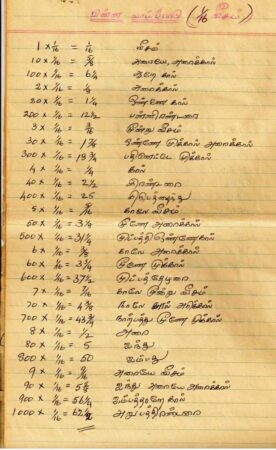 பின்ன வாய்ப்பாடு (1/16 வீசம்)
1 × 1/16 = 1/16 வீசம்
10 × 1/16 = 5/8 அரையே அரைக்கால்
100 × 1/16 = 6 1/4 ஆறே கால்
2 × 1/16 = 1/8 அரைக்கால்
20 × 1/16 = 1 1/4 ஒண்ணே கால்
200 × 1/16 = 12 1/2 பன்னிரண்டரை
3 × 1/16 = 3/16 மூன்று வீசம்
30 × 1/16 = 1 7/8 ஒண்ணே முக்கால் அரைக்கால்
300 × 1/16 = 18 3/4 பதினெட்டே முக்கால்
4 × 1/16 = 1/4 கால்
40 × 1/16 = 2 1/2 இரண்டரை
400 × 1/16 = 25 இருபத்தைந்து
5 × 1/16 = 5/16 காலே வீசம்
50 × 1/16 = 3 1/8 மூணே அரைக்கால்
500 × 1/16 = 31 1/4 முப்பத்திஒண்ணேகால்
6 × 1/16 = 3/8 காலே அரைக்கால்
60 × 1/16 = 3 3/4 மூணே முக்கால்
600 × 1/16 = 37 1/2 முப்பத்தேழரை
7 × 1/16 = 7/16 காலே மூன்று வீசம்
70 × 1/16 = 4 3/8 நாலே கால் அரைக்கால்
700 × 1/16 = 43 3/4 நாற்பத்து மூணே முக்கால்
8 × 1/16 = 1/2 அரை
80 × 1/16 = 5 ஐந்து
800 × 1/16 = 50 ஐம்பது
9 × 1/16 = 9/16 அரையே வீசம்
90 × 1/16 = 5 5/8 ஐந்து அரையே அரைக்கால்
900 × 1/16 = 56 1/4 ஐம்பத்தாறே கால்
1000 × 1/16 = 62 1/2 அறுபத்திரண்டரை